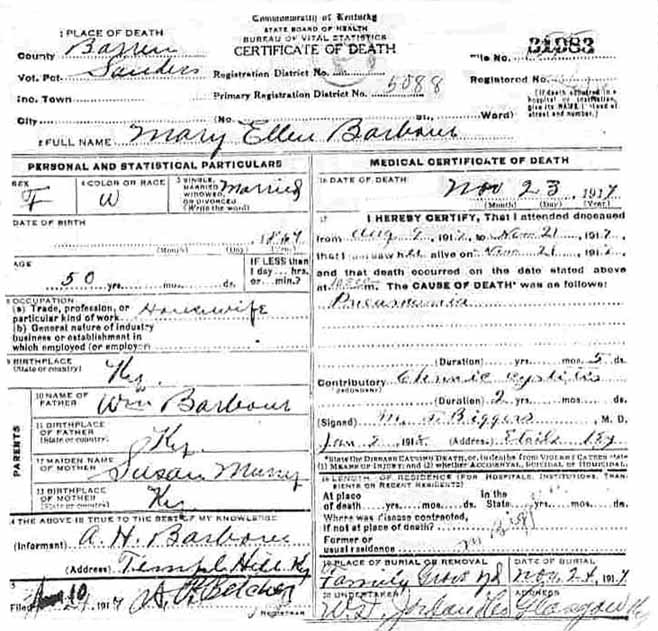 Commonwealth of Kentucky
STATE BOARD OF HEALTH
BUREAU OF VITAL STATISTICS
CERTIFICATE OF DEATH
1 PLACE OF DEATH
County Barren
Vot. Pct. Sanders
Inc. Town
City (No. St., Ward)
Registration District No.
Primary Registration District No. 5088
File No. 31982
Registered No.
(If death occurred in a hospital or institution, give its NAME instead of street and number.)
2 FULL NAME Mary Ellen Barbour
PERSONAL AND STATISTICAL PARTICULARS
SEX F
4 COLOR OR RACE W
5 SINGLE, MARRIED, WIDOWED, OR DIVORCED (Write the word) Married
DATE OF BIRTH
1867
(Month) (Day) (Year)
AGE
50 yrs. mos. ds.
IF LESS than 1 day... hrs. or... min.?
8 OCCUPATION
(a) Trade, profession, or particular kind of work Housewife
(b) General nature of industry
business or establishment in
which employed (or employer)
9 BIRTHPLACE
(State or country) Ky.
PARENTS
10 NAME OF FATHER Wm Barbour
11 BIRTHPLACE OF FATHER (State or country) Ky.
12 MAIDEN NAME OF MOTHER Susan
13 BIRTHPLACE OF MOTHER Ky
14 THE ABOVE IS TRUE TO THE BEST OF MY KNOWLEDGE
(Informant) A. H. Barbour
(Address) Temple Hill Ky
Filed 1917 Belcher
REGISTRAR
MEDICAL CERTIFICATE OF DEATH
16 DATE OF DEATH
Nov 23, 1917
(Month) (Day) (Year)
17 I HEREBY CERTIFY, That I attended deceased
from Aug 7, 1917, to Nov 21, 1917,
that I last saw her alive on Nov 21, 1917,
and that death occurred on the date stated above
at m. The CAUSE OF DEATH* was as follows:
Pneumonia
(Duration) yrs. mos. 5 ds.
Contributory Chronic cystitis
(SECONDARY)
(Duration) 2 yrs. mos. ds.
(Signed) M. F. Biggers, M. D.
Jan 2, 1918 (Address) Ky
*State the DISEASE CAUSING DEATH, or, in deaths from VIOLENT CAUSES state (1) MEANS OF INJURY; and (2) whether ACCIDENTAL, SUICIDAL or HOMICIDAL.
18 LENGTH OF RESIDENCE (FOR HOSPITALS, INSTITUTIONS, TRANSIENTS OR RECENT RESIDENTS)
At place of death yrs. mos. ds. In the State yrs. mos. ds.
Where was disease contracted,
if not at place of death?
Former or
usual residence
19 PLACE OF BURIAL OR REMOVAL Family Grove yd
DATE OF BURIAL Nov. 24, 1917
20 UNDERTAKER W. D.
ADDRESS Glasgow Ky